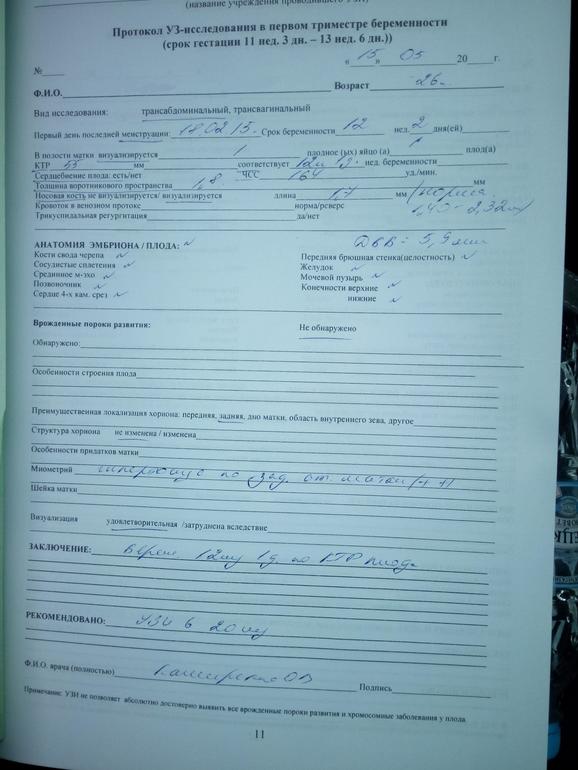 (название учреждения проводившего УЗИ)
Протокол УЗ-исследования в первом триместре беременности
(срок гестации 11 нед. 3 дн. – 13 нед. 6 дн.))
« 15 » 05 20 г.
№
Ф.И.О. Возраст 26
Вид исследования: трансабдоминальный, трансвагинальный
Первый день последней менструации: 18.02.15. Срок беременности 12 нед. 2 дня(ей)
В полости матки визуализируется 1 плодное (ых) яйцо (а) плод(а)
КТР 55 мм соответствует 12н 1д. нед. беременности
Сердцебиение плода: есть/нет ЧСС 164 уд./мин.
Толщина воротникового пространства 1,8 мм
Носовая кость не визуализируется/ визуализируется длина 1,7 мм /норма
Кровоток в венозном протоке норма/реверс 1,40 - 2,32мм/
Трикуспидальная регургитация да/нет
АНАТОМИЯ ЭМБРИОНА / ПЛОДА: 5,9 мм
Кости свода черепа Передняя брюшная стенка(целостность)
Сосудистые сплетения Желудок
Срединное м-эхо Мочевой пузырь
Позвоночник Конечности верхние
Сердце 4-х кам. срез нижние
Врожденные пороки развития: Не обнаружено
Обнаружено:
Особенности строения плода
Преимущественная локализация хориона: передняя, задняя, дно матки, область внутреннего зева, другое
Структура хориона не изменена / изменена
Особенности придатков матки
Миометрий гипертонус по зад. ст. матки (++)
Шейка матки
Визуализация удовлетворительная /затруднена вследствие
ЗАКЛЮЧЕНИЕ: Берем 12нд 1д. по КТР плода
РЕКОМЕНДОВАНО: УЗИ в 20 нд
Ф.И.О. врача (полностью) ОВ Подпись
Примечание: УЗИ не позволяет абсолютно достоверно выявить все врожденные пороки развития и хромосомные заболевания у плода.
11